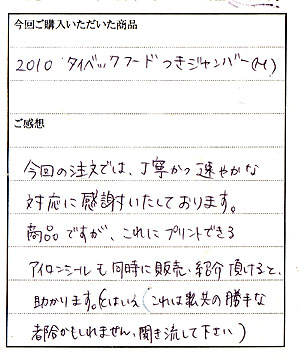 今回ご購入いただいた商品
2010 タイベックフードつきジャンバー(M)
ご感想
今回の注文では、丁寧かつ速やかな
対応に感謝いたしております。
商品ですが、これにプリントできる
アイロンシールも同時に販売・紹介頂けると、
助かります。(とはいえ(これは私共の勝手な
都合かもしれません、聞き流して下さい)